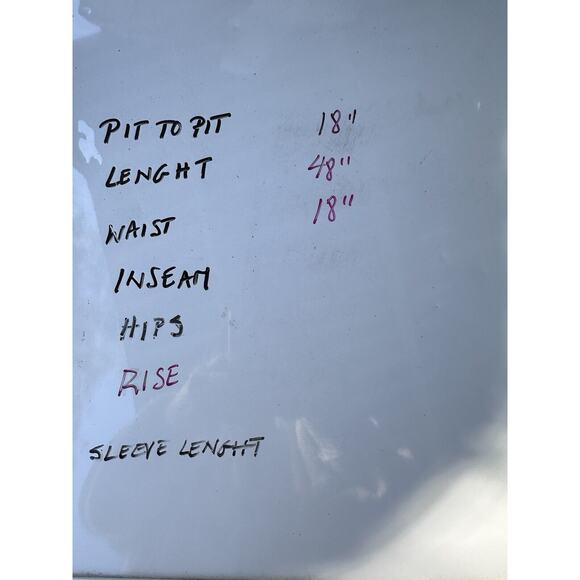 PIT TO PIT 18"
LENGHT 48"
WAIST 18"
INSEAM
HIPS
RISE
SLEEVE LENGHT